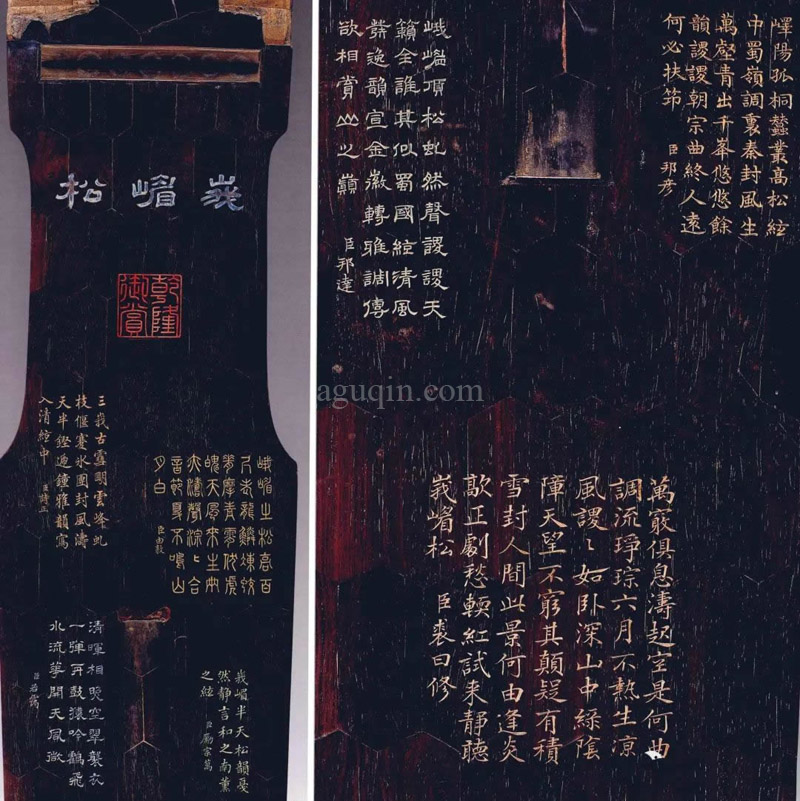 峩嵋松
乾隆
御賞
三峩古雪明雲峰虬
枝偃蹇氷圍封風濤
天半鏗迊鍾雅韻寫
入清絃中
臣詩正
峨嵋之松高百
尺老龍鱗
音
月白
臣由敦
清暉相晚空翠襲衣
一彈再鼓猿吟鶴飛
水流華開天風微
峩嵋半天松韻憂
然靜言和之南薰
之絃
臣勵宗萬
嶧陽孤桐蠶叢高松絃
中蜀嶺調裏秦封風生
萬壑青出千峯悠悠餘
韻謖謖朝宗曲終人遠
何必扶笻
臣邦彥
峨嵋頂松虬然聲謖謖天
籟全誰其似蜀國絃清風
發逸韻宣金徽轉雅調傳
欲相賞㞢之巔
臣邦達
萬竅俱息濤起室是何曲
調流琤琮六月不熱生凉
風謖〻如卧深山中綠陰
障天望不窮其顛疑有積
雪封人間此景何由逢炎
歊正劇愁輭紅試来靜聽
峩嵋松
臣裘曰修
aguqin.com